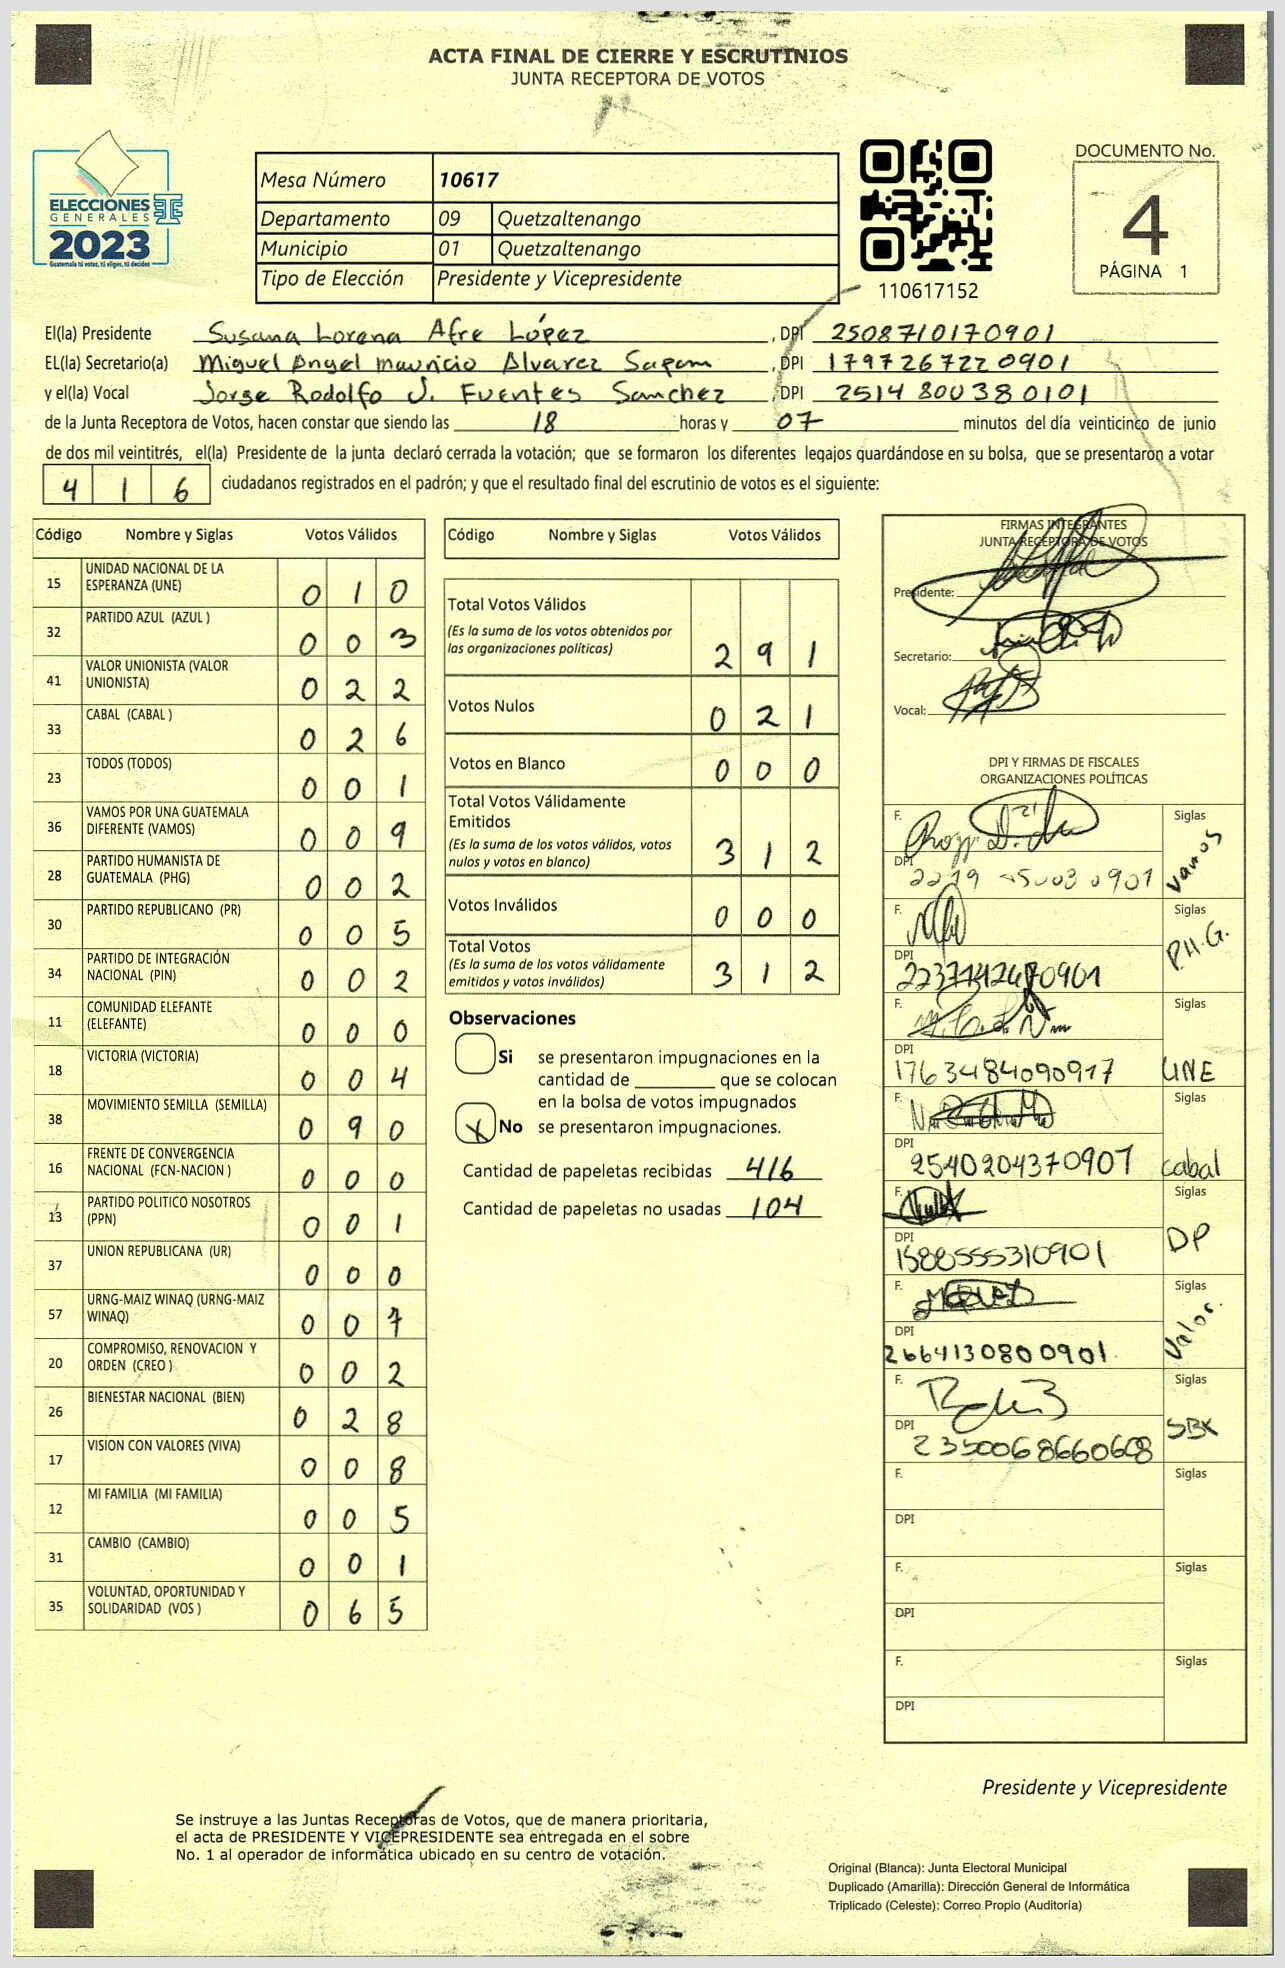 ACTA FINAL DE CIERRE Y ESCRUTINIOS
JUNTA RECEPTORA DE VOTOS
ELECCIONES
GENERALES
2023
Guatemala tú votas, tú eliges, tú decides
Mesa Número 10617
Departamento 09 Quetzaltenango
Municipio 01 Quetzaltenango
Tipo de Elección Presidente y Vicepresidente
110617152
DOCUMENTO No.
4
PÁGINA 1
El(la) Presidente Susana Lorena Afre López, DPI 2508710170901
EL(la) Secretario(a) Miguel Angel Mauricio Alvarez, DPI 1797267220901
y el(la) Vocal Jorge Rodolfo J. Fuentes Sanchez, DPI 2514800380101
de la Junta Receptora de Votos, hacen constar que siendo las 18 horas y 07 minutos del día veinticinco de junio
de dos mil veintitrés, el(la) Presidente de la junta declaró cerrada la votación; que se formaron los diferentes legajos guardándose en su bolsa, que se presentaron a votar
416 ciudadanos registrados en el padrón; y que el resultado final del escrutinio de votos es el siguiente:
Código Nombre y Siglas Votos Válidos
15 UNIDAD NACIONAL DE LA ESPERANZA (UNE) 0 1 0
32 PARTIDO AZUL (AZUL ) 0 0 3
41 VALOR UNIONISTA (VALOR UNIONISTA) 0 2 2
33 CABAL (CABAL ) 0 2 6
23 TODOS (TODOS) 0 0 1
36 VAMOS POR UNA GUATEMALA DIFERENTE (VAMOS) 0 0 9
28 PARTIDO HUMANISTA DE GUATEMALA (PHG) 0 0 2
30 PARTIDO REPUBLICANO (PR) 0 0 5
34 PARTIDO DE INTEGRACIÓN NACIONAL (PIN) 0 0 2
11 COMUNIDAD ELEFANTE (ELEFANTE) 0 0 0
18 VICTORIA (VICTORIA) 0 0 4
38 MOVIMIENTO SEMILLA (SEMILLA) 0 9 0
16 FRENTE DE CONVERGENCIA NACIONAL (FCN-NACION ) 0 0 0
13 PARTIDO POLITICO NOSOTROS (PPN) 0 0 1
37 UNION REPUBLICANA (UR) 0 0 0
57 URNG-MAIZ WINAQ (URNG-MAIZ WINAQ) 0 0 7
20 COMPROMISO, RENOVACION Y ORDEN (CREO ) 0 0 2
26 BIENESTAR NACIONAL (BIEN) 0 2 8
17 VISION CON VALORES (VIVA) 0 0 8
12 MI FAMILIA (MI FAMILIA) 0 0 5
31 CAMBIO (CAMBIO) 0 0 1
35 VOLUNTAD, OPORTUNIDAD Y SOLIDARIDAD (VOS ) 0 6 5
Código Nombre y Siglas Votos Válidos
Total Votos Válidos
(Es la suma de los votos obtenidos por las organizaciones políticas) 2 9 1
Votos Nulos 0 2 1
Votos en Blanco 0 0 0
Total Votos Válidamente Emitidos
(Es la suma de los votos válidos, votos nulos y votos en blanco) 3 1 2
Votos Inválidos 0 0 0
Total Votos
(Es la suma de los votos válidamente emitidos y votos inválidos) 3 1 2
Observaciones
Si se presentaron impugnaciones en la
cantidad de ________ que se colocan
en la bolsa de votos impugnados
X No se presentaron impugnaciones.
Cantidad de papeletas recibidas 416
Cantidad de papeletas no usadas 104
FIRMAS INTEGRANTES
JUNTA RECEPTORA DE VOTOS
Presidente:
Secretario:
Vocal:
DPI Y FIRMAS DE FISCALES
ORGANIZACIONES POLÍTICAS
F. Siglas
DPI Vamos
F. Siglas
DPI P.H.G.
F. Siglas
DPI 1763484090917 UNE
F. Siglas
DPI 2540204370901 Cabal
F. Siglas
DPI 1588555310901 DP
F. Siglas
DPI 2664130800901 Valor.
F. Siglas
DPI 2350068660608
F. Siglas
DPI
F. Siglas
DPI
F. Siglas
DPI
Presidente y Vicepresidente
Se instruye a las Juntas Receptoras de Votos, que de manera prioritaria,
el acta de PRESIDENTE Y VICEPRESIDENTE sea entregada en el sobre
No. 1 al operador de informática ubicado en su centro de votación.
Original (Blanca): Junta Electoral Municipal
Duplicado (Amarilla): Dirección General de Informática
Triplicado (Celeste): Correo Propio (Auditoría)